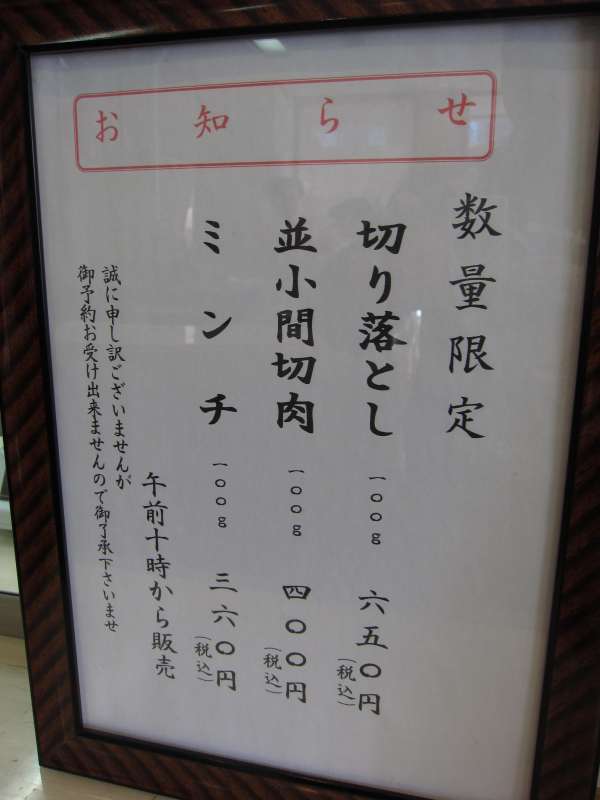 お知らせ
数量限定
切り落とし 一〇〇g 六五〇円(税込)
並小間切肉 一〇〇g 四〇〇円(税込)
ミンチ 一〇〇g 三六〇円(税込)
午前十時から販売
誠に申し訳ございませんが
御予約お受け出来ませんので御了承下さいませ